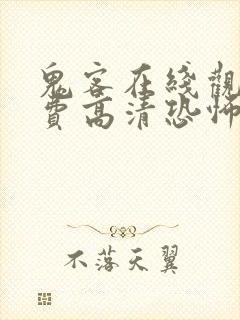 鬼客在綫觀
費高清恐怖
不落天翼